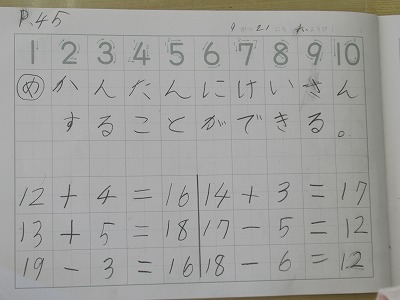 P.45
1 2 3 4 5 6 7 8 9 10
め かんたんにけいさん
することができる。
12+4=16 14+3=17
13+5=18 17-5=12
19-3=16 18-6=12